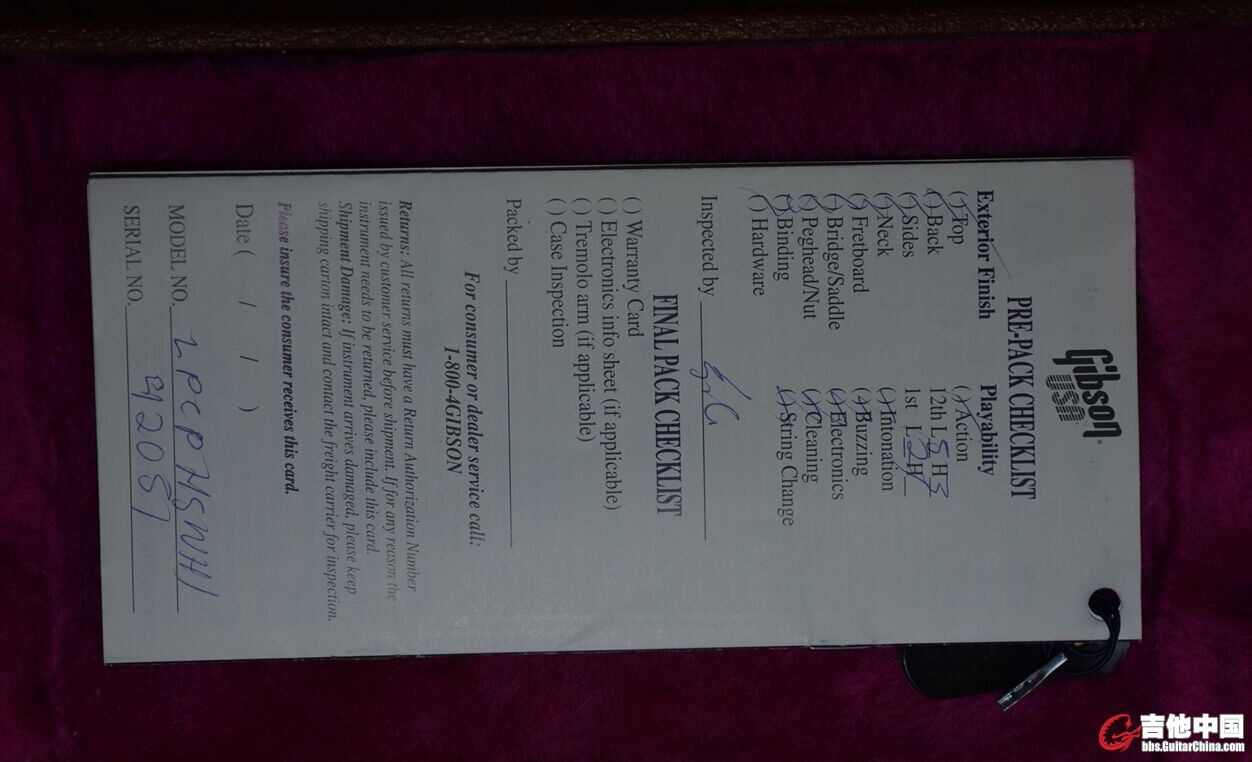 Gibson
USA
PRE-PACK CHECKLIST
Exterior Finish
( ) Top
( ) Back
( ) Sides
( ) Neck
( ) Fretboard
( ) Bridge/Saddle
( ) Peghead/Nut
( ) Binding
( ) Hardware
Playability
( ) Action
12th L 5 H 3
1st L 2 H
( ) Intonation
( ) Buzzing
( ) Electronics
( ) Cleaning
( ) String Change
Inspected by
FINAL PACK CHECKLIST
( ) Warranty Card
( ) Electronics info sheet (if applicable)
( ) Tremolo arm (if applicable)
( ) Case Inspection
Packed by
For consumer or dealer service call:
1-800-4GIBSON
Returns: All returns must have a Return Authorization Number
issued by customer service before shipment. If for any reason the
instrument needs to be returned, please include this card.
Shipment Damage: If instrument arrives damaged, please keep
shipping carton intact and contact the freight carrier for inspection.
Please insure the consumer receives this card.
Date ( / / )
MODEL NO. LPCPHSWH1
SERIAL NO.
吉他中国
bbs.GuitarChina.com